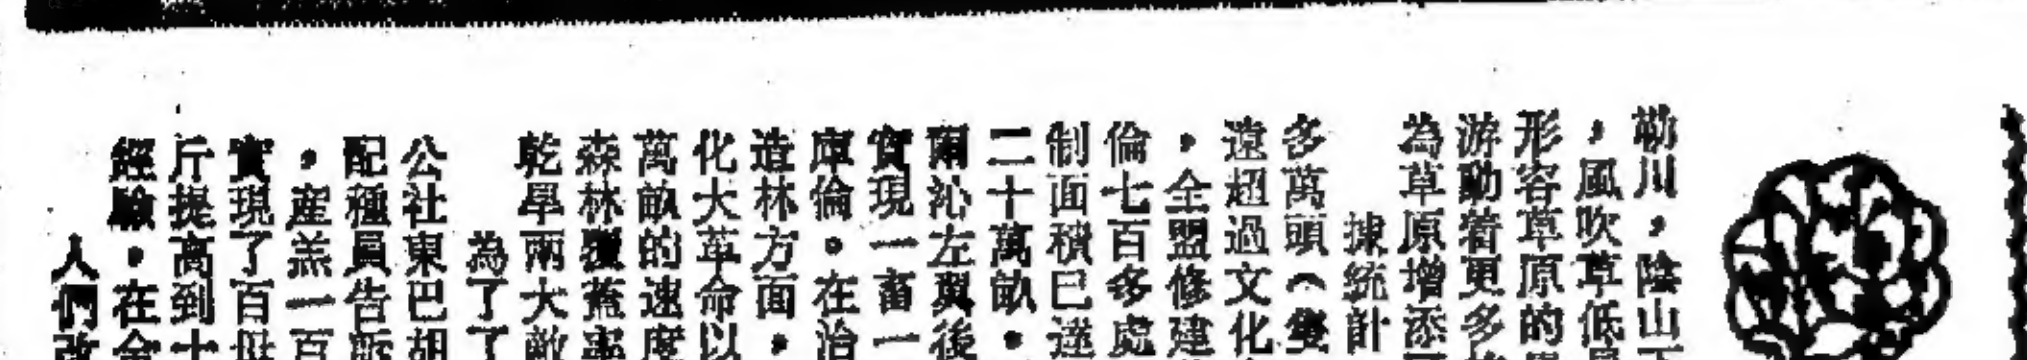 勒川，陰山下
，風吹草低
形容草原的
游動着更多
為草原增添
據統計
多萬頭（隻
遠超過文化
，全盟修建
倫七百多處
制面積已達
二十萬畝。
爾沁左翼後
實現一畜一
庫倫。在治
造林方面，
化大革命以
萬畝的速度
森林覆蓋率
乾旱兩大敵
為了了
公社東巴胡
配種員告訴
，產羔一百
實現了百母
斤提高到十
經驗。在全
人們改